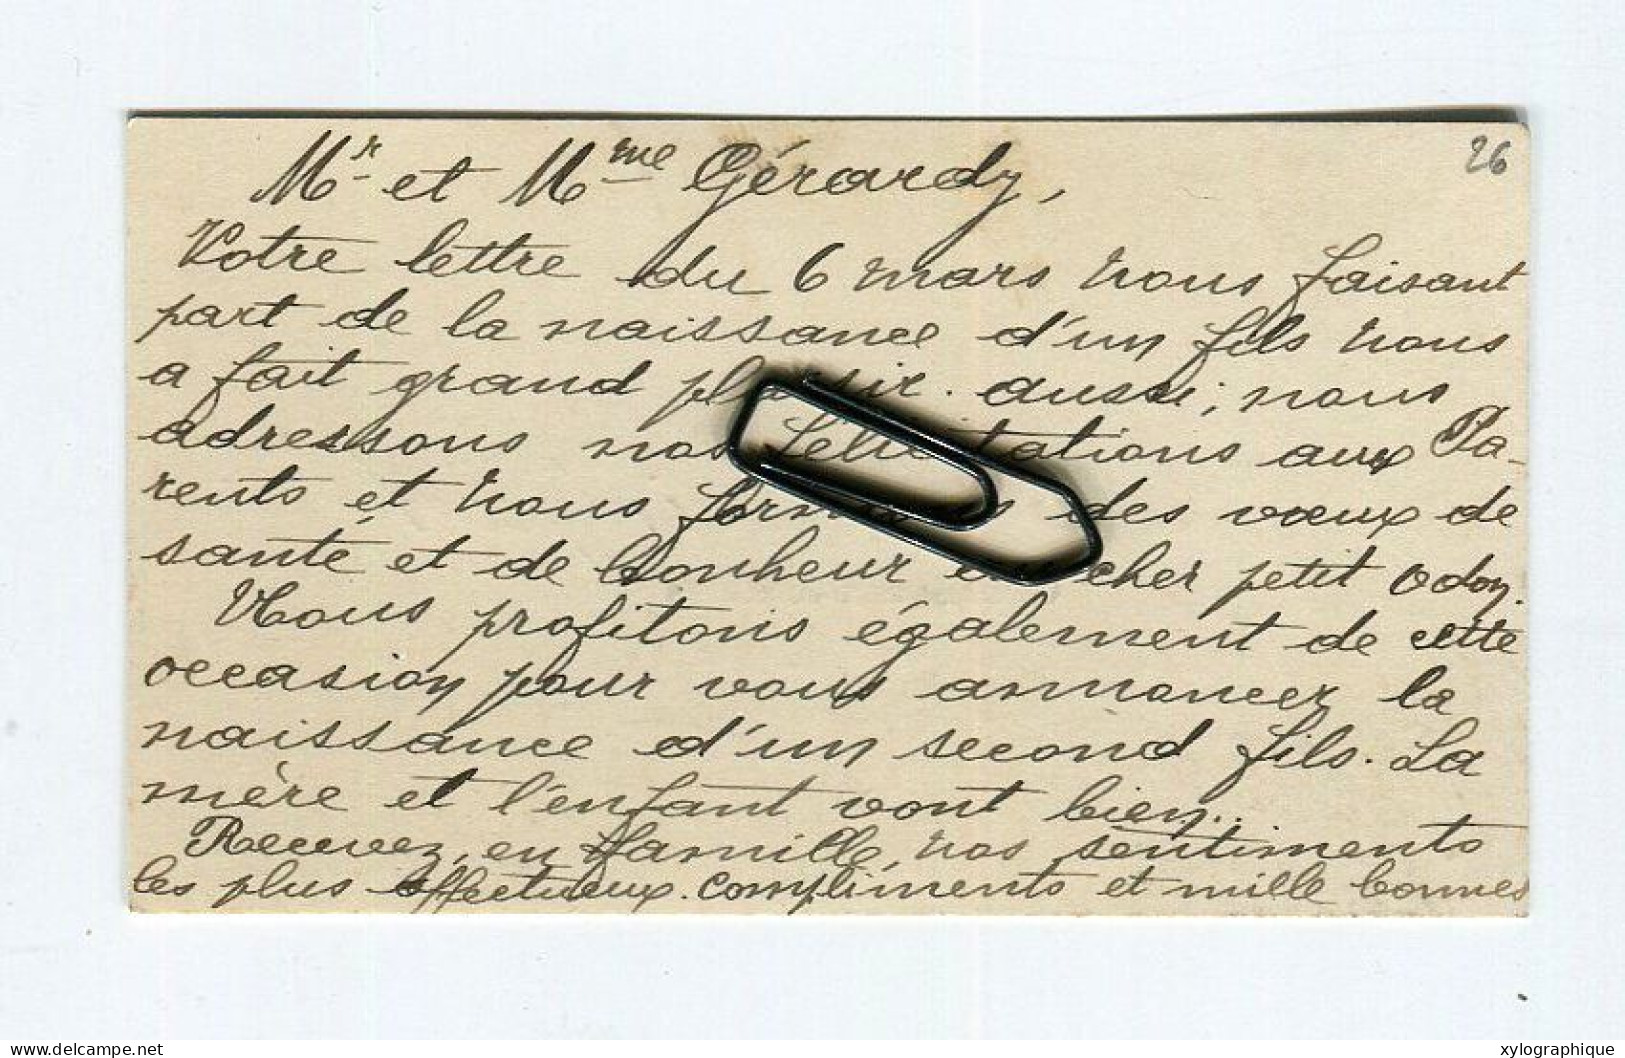 26
Mr et Mme Gérardy,
Votre lettre du 6 mars nous faisant
part de la naissance d'un fils nous
a fait grand plaisir. aussi, nous
adressons nos félicitations aux Pa-
rents et nous formons des vœux de
santé et de bonheur au cher petit Odon.
Nous profitons également de cette
occasion pour vous annoncer la
naissance d'un second fils. La
mère et l'enfant vont bien..
Recevez, en famille, nos sentiments
les plus affectueux. compliments et mille bonnes
delcampe.net
xylographique